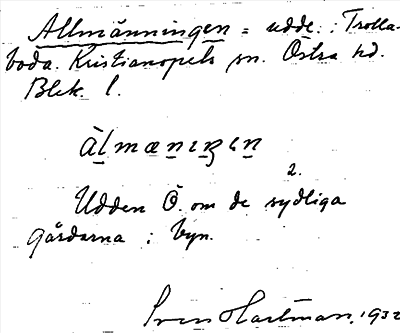 Allmänningen = udde. i Trolla-
boda. Kristianopels sn. Östra hd.
Blek. l.
àlmænıŋen
2.
Udden Ö. om de sydliga
gårdarna i byn.
Sven Hartman, 1932